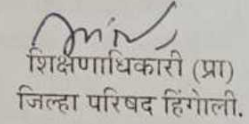 शिक्षणाधिकारी (प्रा)
जिल्हा परिषद हिंगोली.